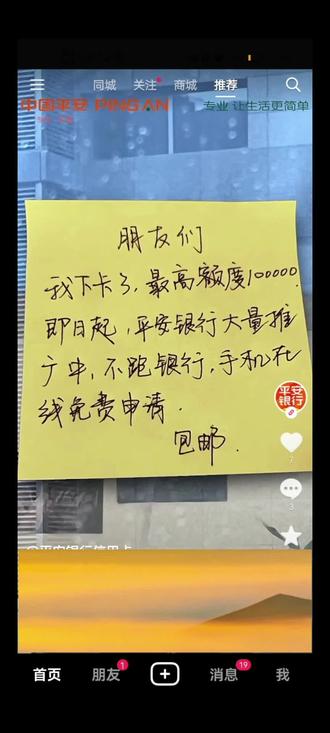 同城 关注 商城 推荐
中国平安 PING AN
专业 让生活更简单
朋友们
我下卡了，最高额度100000.
即日起，平安银行大量推
广中，不跑银行，手机在
线免费申请.
包邮.
平安
银行
7
3
@平安银行信用卡
首页 朋友 1 消息 19 我